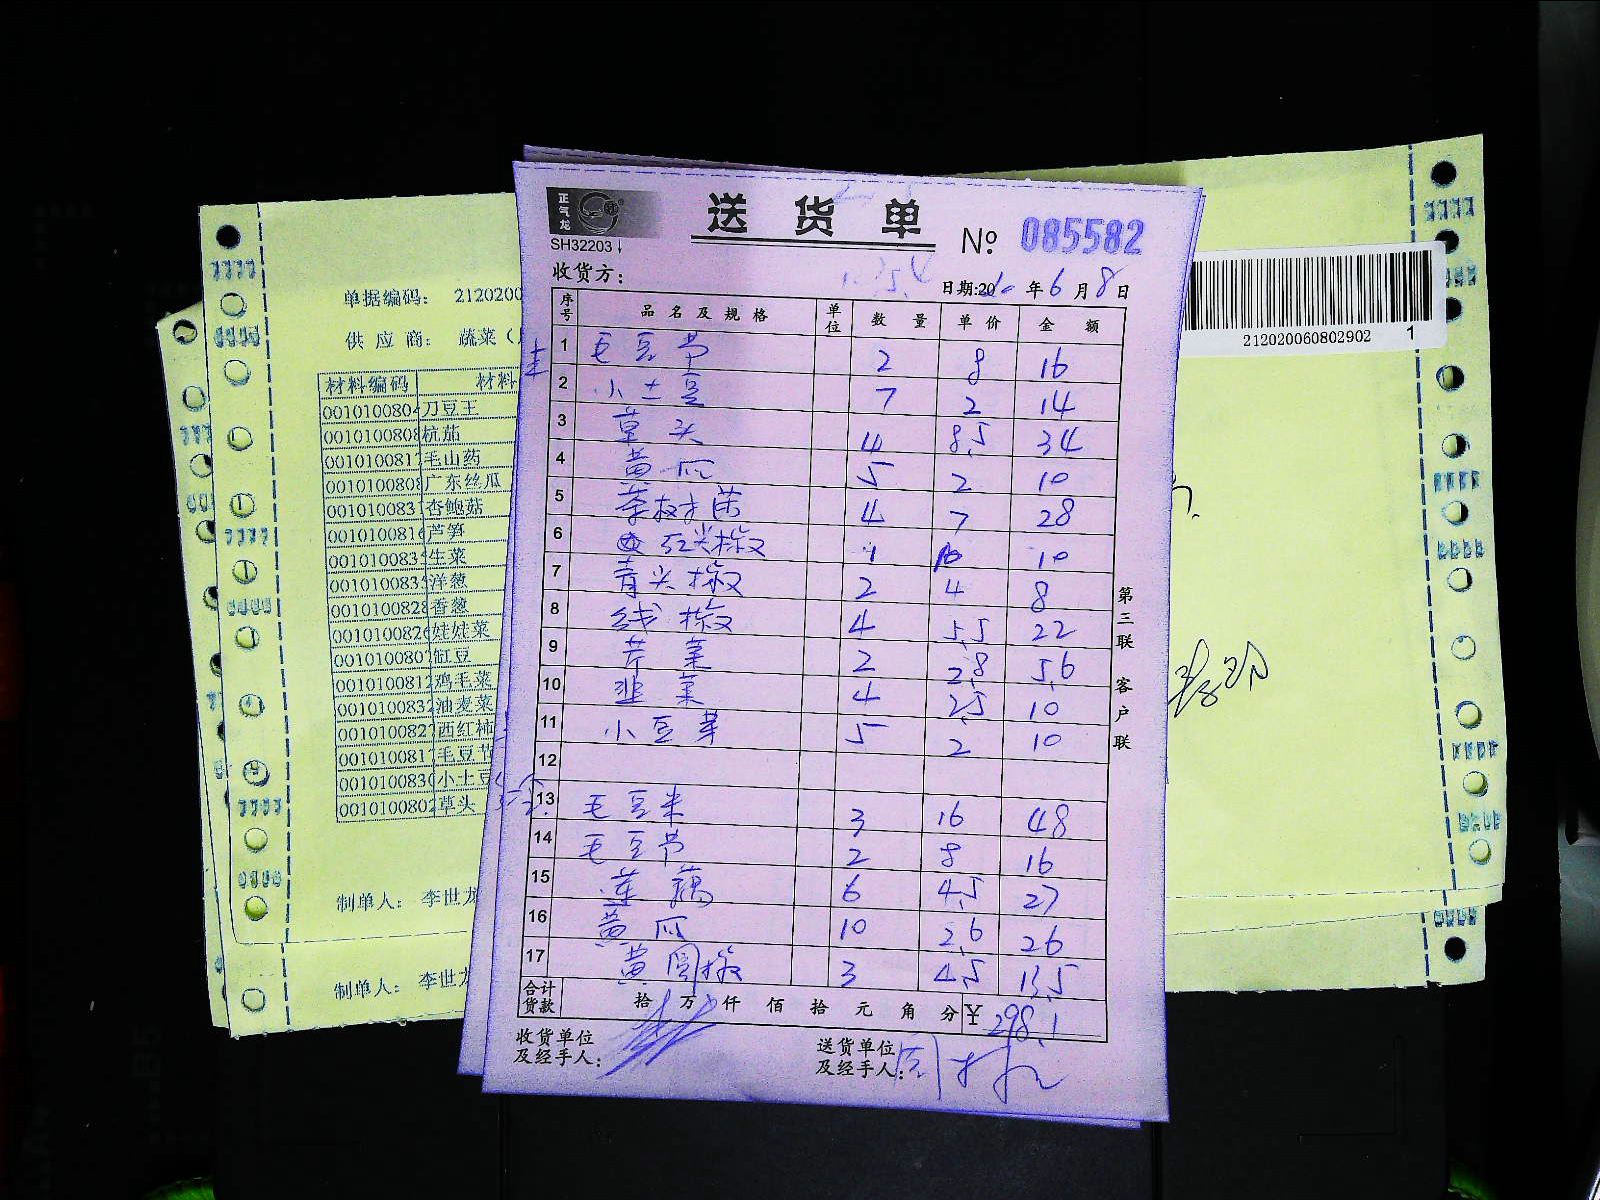 正气龙
SH32203
送货单
№ 085582
收货方：
日期:20 年6月8日
序号 品名及规格 单位 数量 单价 金额
1 毛豆节 2 8 16
2 小土豆 7 2 14
3 草头 4 8.5 34
4 黄瓜 5 2 10
5 茶树菌 4 7 28
6 红尖椒 1 10 10
7 青头椒 2 4 8
8 线椒 4 5.5 22
9 芹菜 2 2.8 5.6
10 韭菜 4 2.5 10
11 小豆芽 5 2 10
12
13 毛豆米 3 16 48
14 毛豆节 2 8 16
15 莲藕 6 4.5 27
16 黄瓜 10 2.6 26
17 黄圆椒 3 4.5 13.5
合计货款 拾万仟佰拾元角分 ￥298.1
收货单位及经手人：
送货单位及经手人：
第三联 客户联
单据编码： 2120200
供应商： 蔬菜（
材料编码 材料
001010080 刀豆王
0010100808 杭茄
001010081 毛山药
0010100808 广东丝瓜
001010083 杏鲍菇
0010100816 芦笋
001010083 生菜
001010083 洋葱
0010100828 香葱
001010082 娃娃菜
001010080 缸豆
001010081 鸡毛菜
001010083 油麦菜
001010082 西红柿
001010081 毛豆节
001010083 小土豆
001010080 草头
制单人： 李世龙
制单人： 李世龙
212020060802902 1